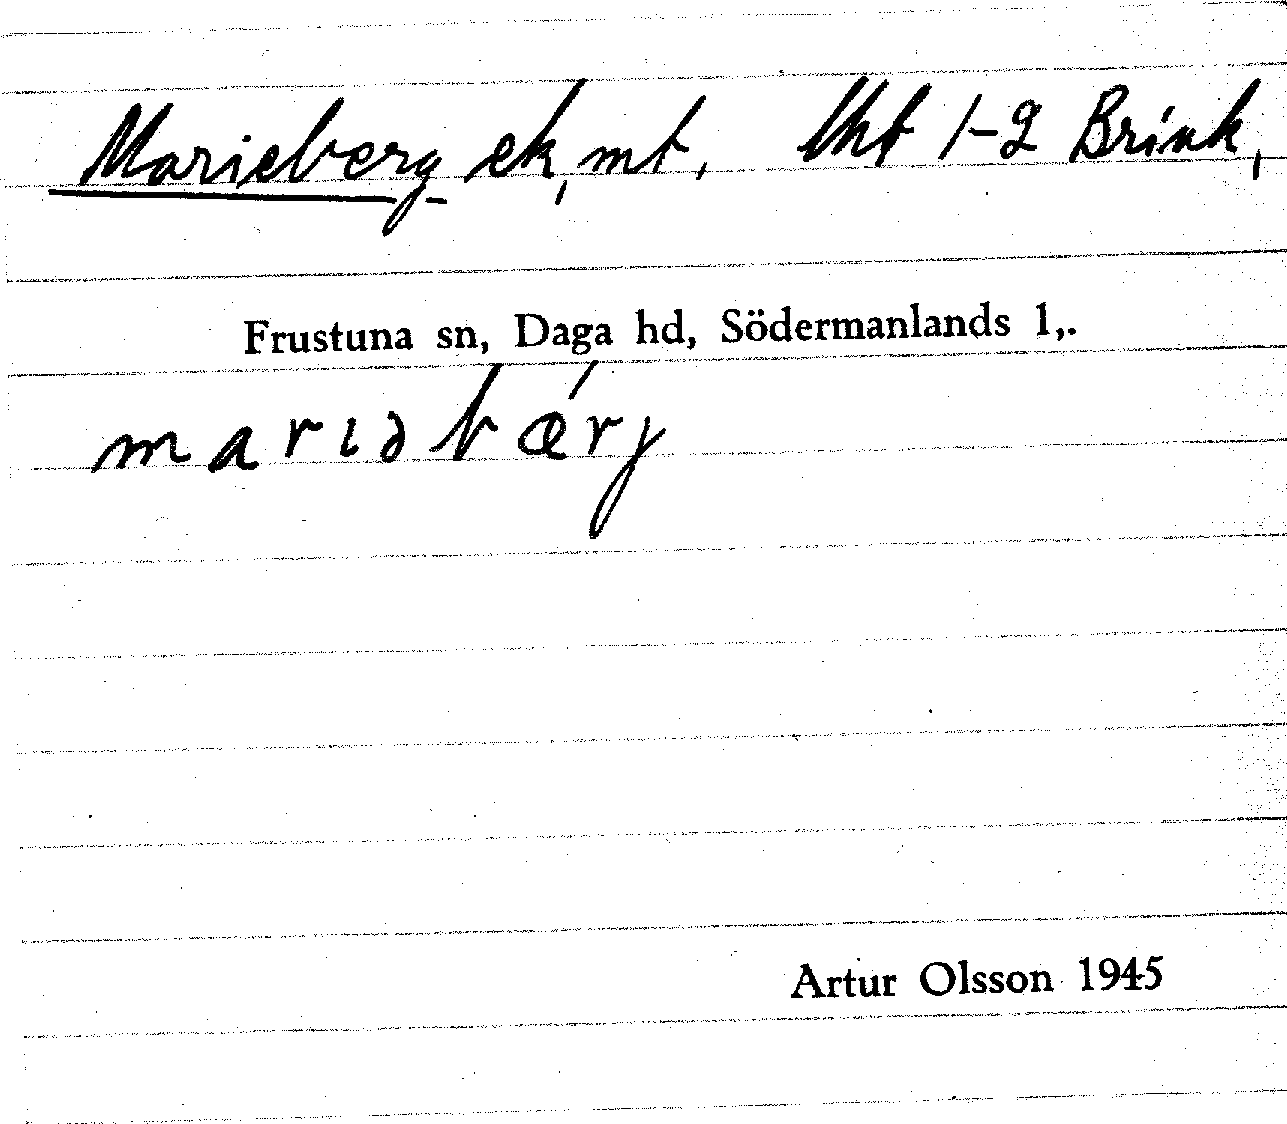 Marieberg ek, mt, Uht 1-2 Brink,
Frustuna sn, Daga hd, Södermanlands l,.
marıəbǽrj
Artur Olsson 1945